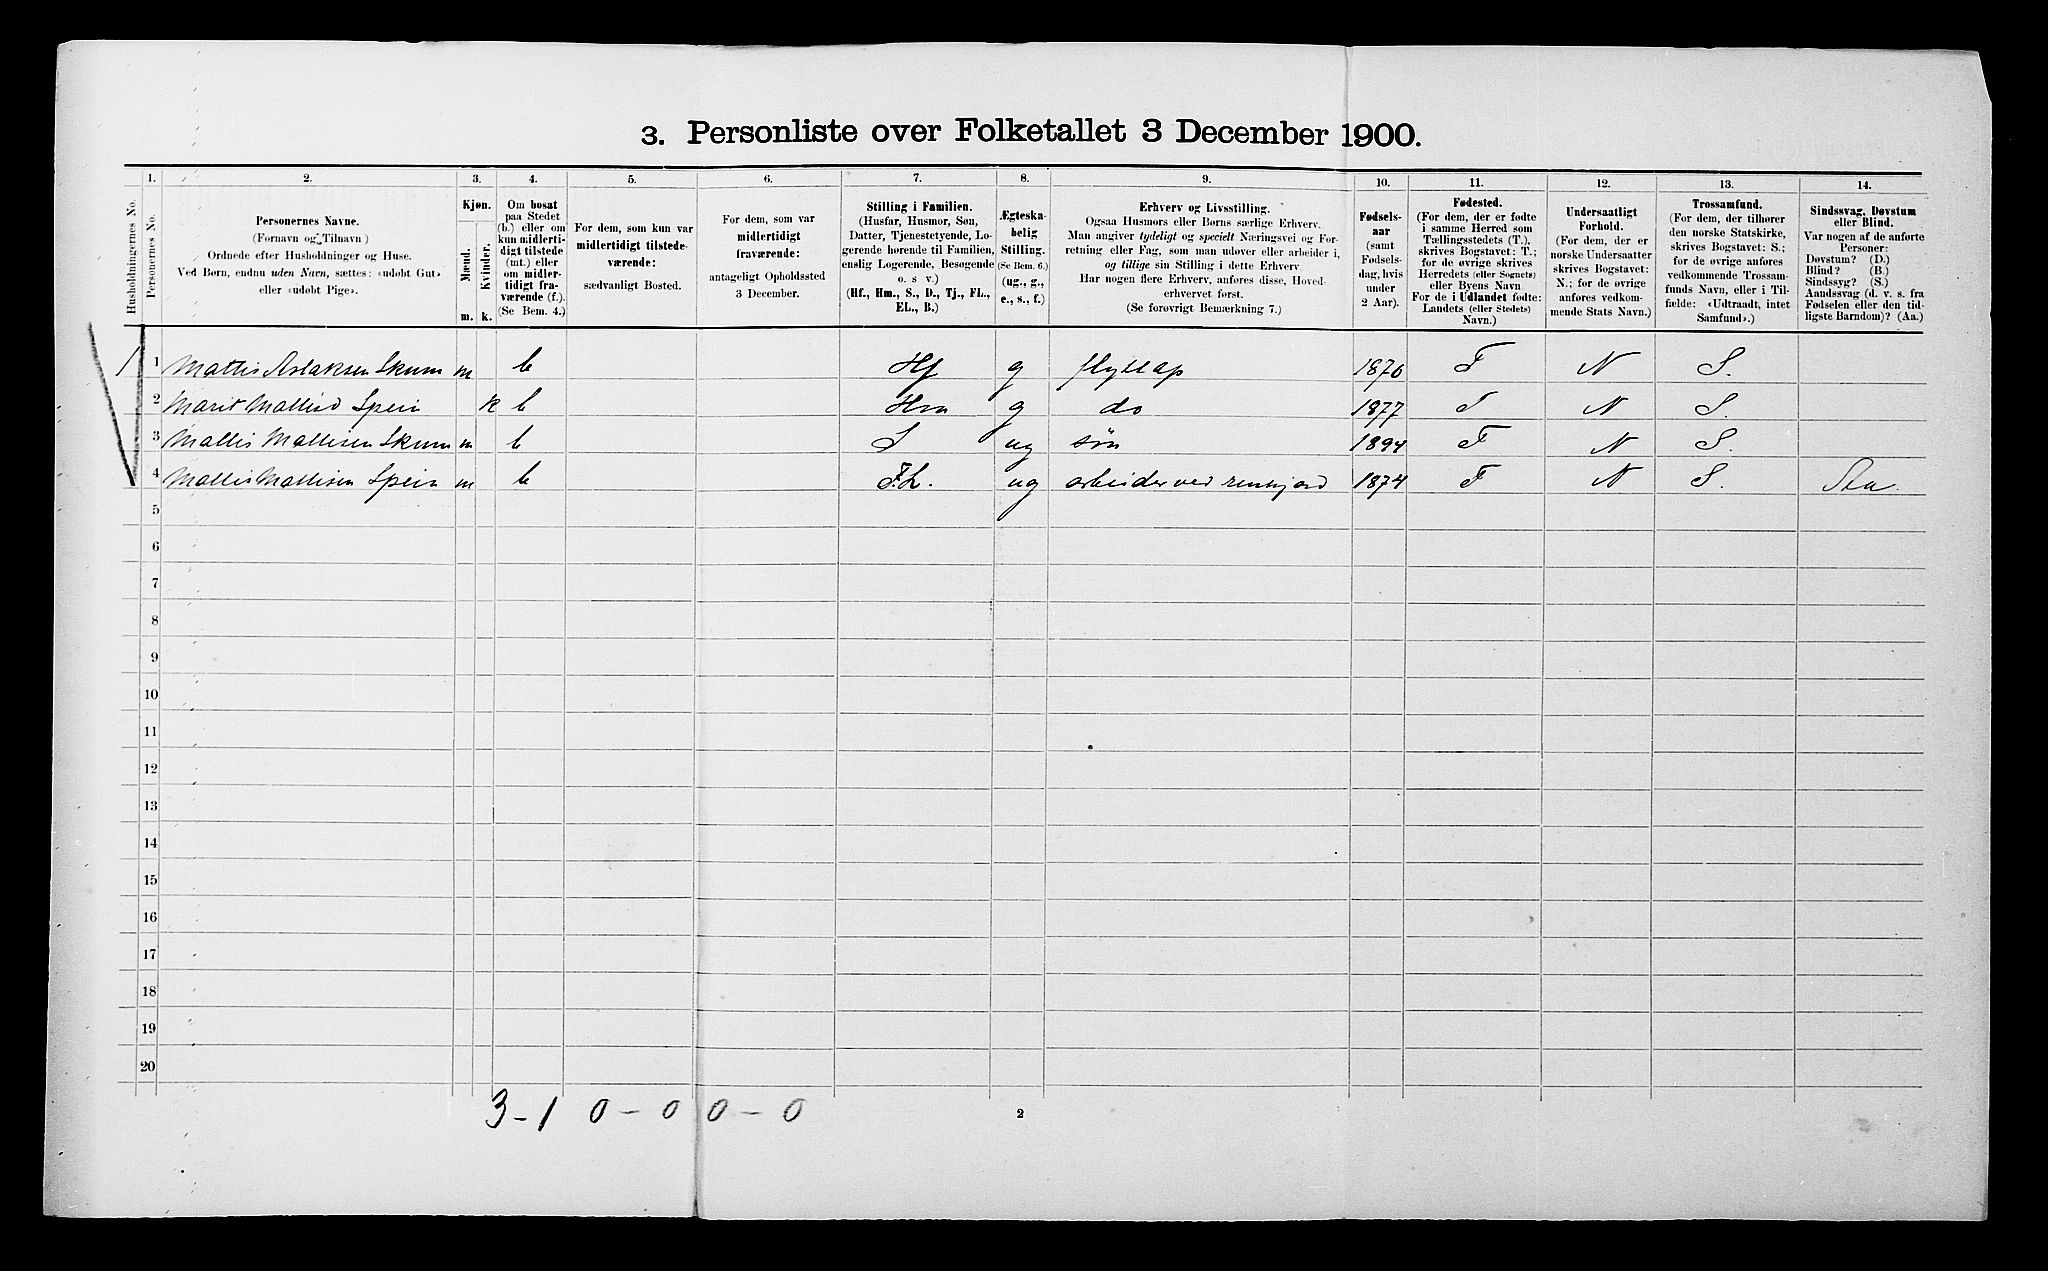 3. Personliste over Folketallet 3 December 1900.
1. 2. 3. 4. 5. 6. 7. 8. 9. 10. 11. 12. 13. 14.
Husholdningernes No.
Personernes No.
Personernes Navne.
(Fornavn og Tilnavn)
Ordnede efter Husholdninger og Huse.
Ved Børn, endnu uden Navn, sættes: «udøbt Gut»
eller «udøbt Pige».
Kjøn.
Mænd.
Kvinder.
m. k.
Om bosat
paa Stedet
(b.) eller om
kun midlerti-
digt tilstede
(mt.) eller
om midler-
tidigt fra-
værende (f.).
(Se Bem. 4.)
For dem, som kun var
midlertidigt tilstede-
værende:
sædvanligt Bosted.
For dem, som var
midlertidigt
fraværende:
antageligt Opholdssted
3 December.
Stilling i Familien.
(Husfar, Husmor, Søn,
Datter, Tjenestetyende, Lo-
gerende hørende til Familien,
enslig Logerende, Besøgende
o. s. v.)
(Hf., Hm., S., D., Tj., FL.,
EL., B.)
Ægteska-
belig
Stilling.
(Se Bem. 6.)
(ug., g.,
e., s., f.)
Erhverv og Livsstilling.
Ogsaa Husmors eller Børns særlige Erhverv.
Man angiver tydeligt og specielt Næringsvei og For-
retning eller Fag, som man udøver eller arbeider i,
og tillige sin Stilling i dette Erhverv.
Har nogen flere Erhverv, anføres disse, Hoved-
erhvervet først.
(Se forøvrigt Bemærkning 7.)
Fødsels-
aar
(samt
Fødsels-
dag, hvis
under
2 Aar).
Fødested.
(For dem, der er fødte
i samme Herred som
Tællingsstedets (T.),
skrives Bogstavet: T.;
for de øvrige skrives
Herredets (eller Sognets)
eller Byens Navn.
For de i Udlandet fødte:
Landets (eller Stedets)
Navn.)
Undersaatligt
Forhold.
(For dem, der er
norske Undersaatter
skrives Bogstavet:
N.; for de øvrige
anføres vedkom-
mende Stats Navn.)
Trossamfund.
(For dem, der tilhører
den norske Statskirke,
skrives Bogstavet: S.;
for de øvrige anføres
vedkommende Trossam-
funds Navn, eller i Til-
fælde: «Udtraadt, intet
Samfund».)
Sindssvag, Døvstum
eller Blind.
Var nogen af de anførte
Personer:
Døvstum? (D.)
Blind? (B.)
Sindssyg? (S.)
Aandssvag (d. v. s. fra
Fødselen eller den tid-
ligste Barndom)? (Aa.)
1 1 Mattis Aslaksen Skum m b Hf g flytlap 1870 T N S.
2 Marit Mattisd Spein k b Hm g do 1877 T N S.
3 Mattis Mattisen Skum m b S ug søn 1894 T N S.
4 Mattis Mattisen Spein m b F.L. ug arbeider ved renhjord 1874 T N S.
5
6
7
8
9
10
11
12
13
14
15
16
17
18
19
20
3-1 0-0 0-0
2